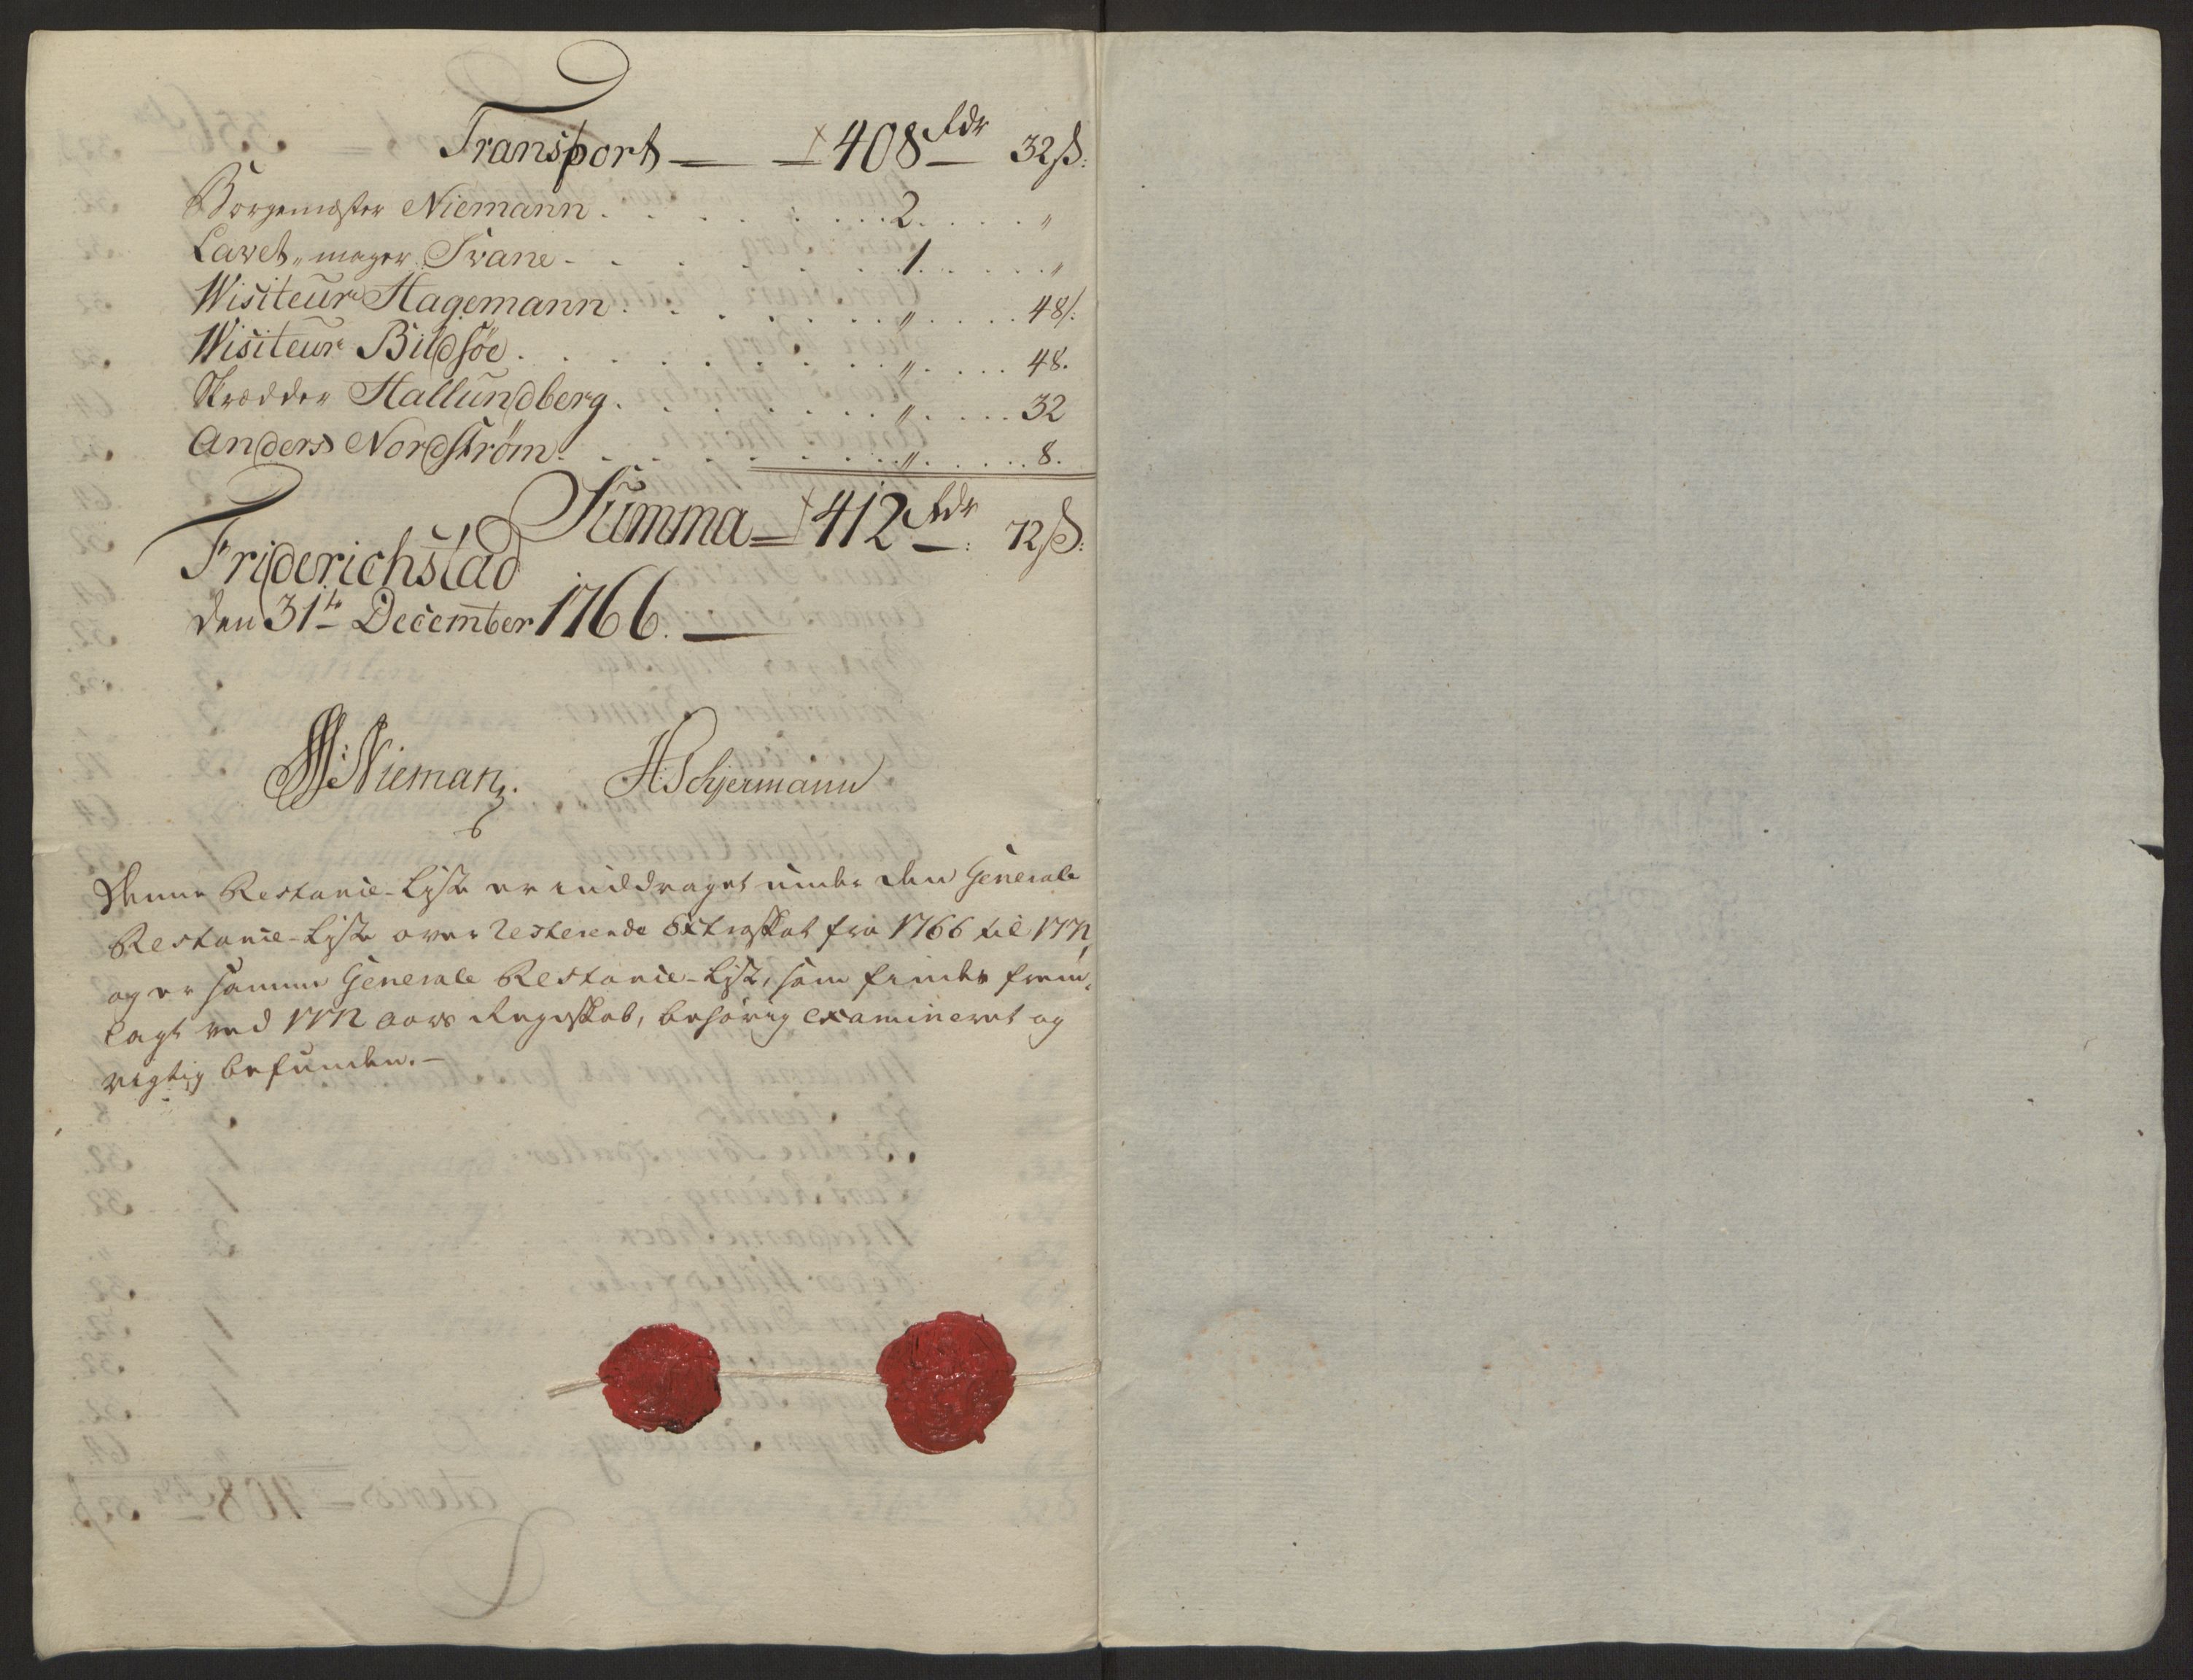 Transport — 408 Rdr 32 ß:
Borgemester Niemann . . . . . . . . 2. . . . . "
Lavet„mager Svane - . . . . . . . . 1. . . . . . "
Wisiteur Hagemann . . . . . . . . " . . . . 48ß:
Wisiteur Bildsøe . . . . . . . . . " . . . . 48.
Skrædder Hallundberg . . . . . . . " . . . . 32
Anders Nordstrøm . . . . . . . . . " . . . . 8.
Summa — 412 Rdr: 72 ß:
Friderichstad
den 31te December 1766. —
Nieman. HSchjermann
Denne Restance-Liste er inddraget under den Generale
Restance-Liste over resterende Extraskat fra 1766 til 1772,
og er samme Generale Restance-Liste, som findes frem„
lagt ved 1772 aars Regnskab, behørig examineret og
rigtig befunden. —